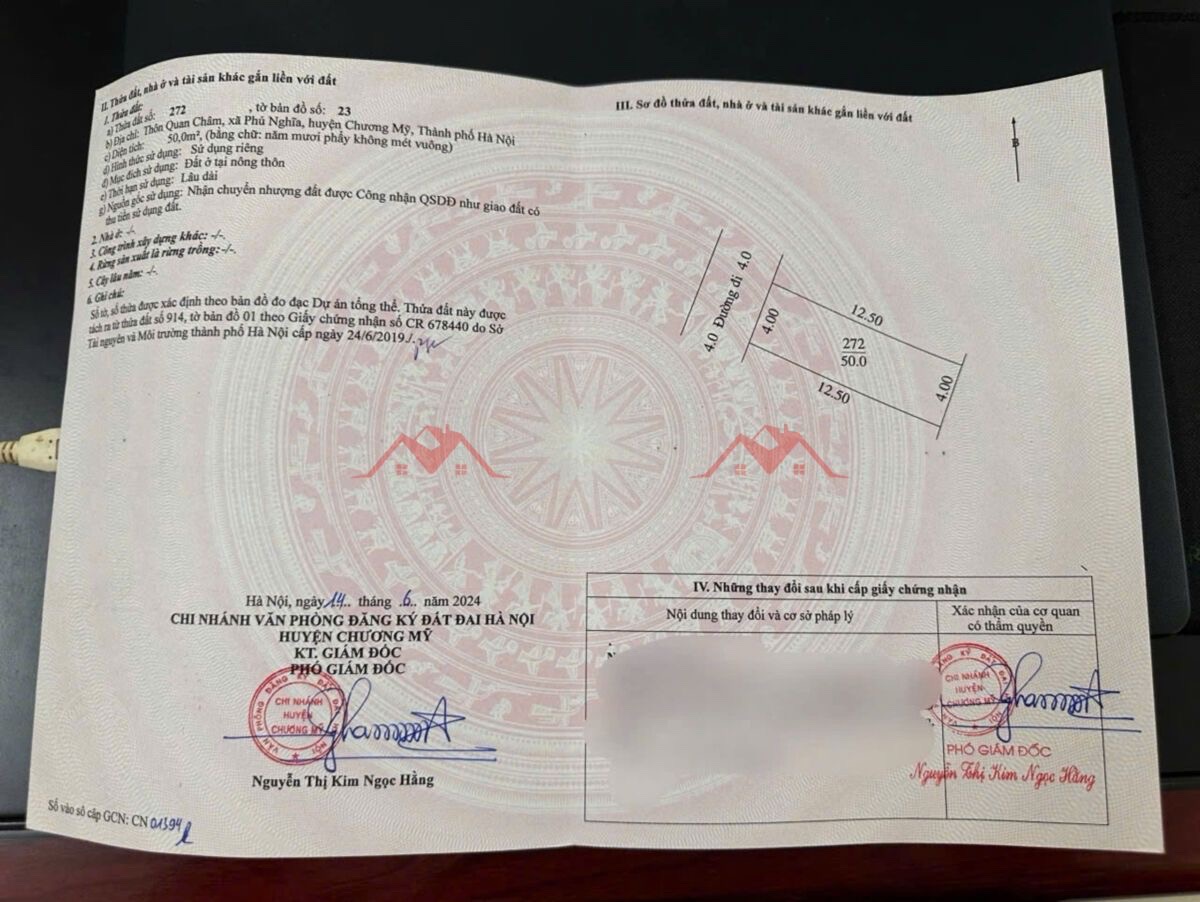 II. Thửa đất, nhà ở và tài sản khác gắn liền với đất
1. Thửa đất:
a) Thửa đất số: 272 , tờ bản đồ số: 23
b) Địa chỉ: Thôn Quan Châm, xã Phú Nghĩa, huyện Chương Mỹ, Thành phố Hà Nội
c) Diện tích: 50,0m², (bằng chữ: năm mươi phẩy không mét vuông)
d) Hình thức sử dụng: Sử dụng riêng
đ) Mục đích sử dụng: Đất ở tại nông thôn
e) Thời hạn sử dụng: Lâu dài
g) Nguồn gốc sử dụng: Nhận chuyển nhượng đất được Công nhận QSDĐ như giao đất có
thu tiền sử dụng đất.
2. Nhà ở: -/-.
3. Công trình xây dựng khác: -/-.
4. Rừng sản xuất là rừng trồng: -/-.
5. Cây lâu năm: -/-.
6. Ghi chú:
Số tờ, số thửa được xác định theo bản đồ đo đạc Dự án tổng thể. Thửa đất này được
tách ra từ thửa đất số 914, tờ bản đồ 01 theo Giấy chứng nhận số CR 678440 do Sở
Tài nguyên và Môi trường thành phố Hà Nội cấp ngày 24/6/2019./.
Hà Nội, ngày 14.. tháng .6.. năm 2024
CHI NHÁNH VĂN PHÒNG ĐĂNG KÝ ĐẤT ĐAI HÀ NỘI
HUYỆN CHƯƠNG MỸ
KT. GIÁM ĐỐC
PHÓ GIÁM ĐỐC
VĂN PHÒNG ĐĂNG KÝ ĐẤT ĐAI HÀ NỘI
CHI NHÁNH
HUYỆN
CHƯƠNG MỸ
Nguyễn Thị Kim Ngọc Hằng
Số vào sổ cấp GCN: CN 01394
III. Sơ đồ thửa đất, nhà ở và tài sản khác gắn liền với đất
B
4.0 Đường đi 4.0
4.00
12.50
272
50.0
12.50
4.00
IV. Những thay đổi sau khi cấp giấy chứng nhận
Nội dung thay đổi và cơ sở pháp lý
Xác nhận của cơ quan
có thẩm quyền
CHI NHÁNH
HUYỆN
CHƯƠNG MỸ
PHÓ GIÁM ĐỐC
Nguyễn Thị Kim Ngọc Hằng